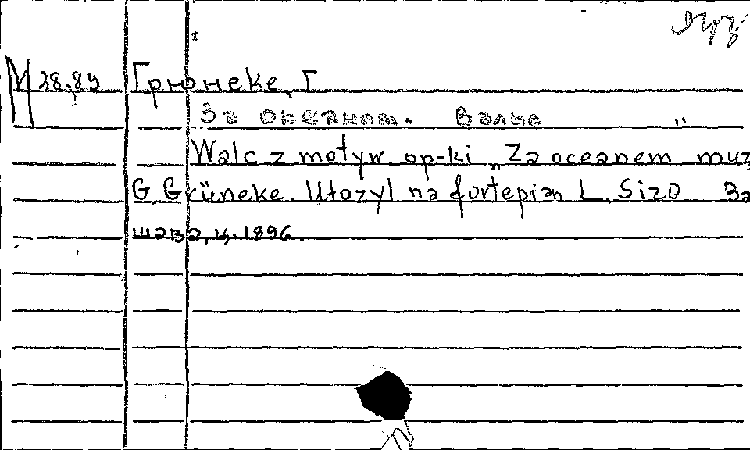 M 28,89 Грюнеке, Г
За океаном. Вальс
Walc z motyw op-ki „Za oceanem" muz
G Grüneke. Utozyl na fortepian L. Sizo
шава, ц. 1896.